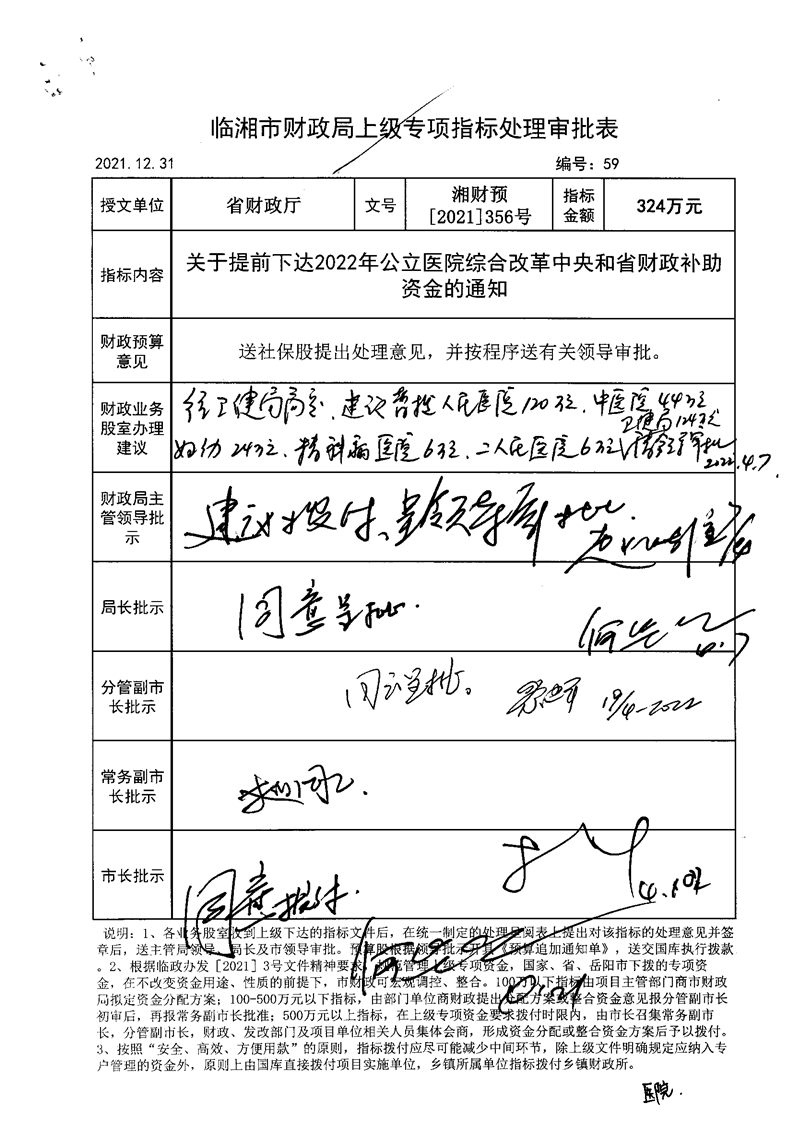 临湘市财政局上级专项指标处理审批表
2021.12.31 编号：59
授文单位 省财政厅 文号 湘财预[2021]356号 指标金额 324万元
指标内容 关于提前下达2022年公立医院综合改革中央和省财政补助
资金的通知
财政预算意见 送社保股提出处理意见，并按程序送有关领导审批。
财政业务股室办理建议 经卫健局商定，建议曾拨人民医院120万，中医院44万
卫健局124万
妇幼24万、精神病医院6万、二人民医院6万
2022.4.7
财政局主管领导批示 建议拨付、呈领导审批
局长批示 同意呈批.
4.7
分管副市长批示 同意呈批。 19/4-2022
常务副市长批示 拟同意.
市长批示 同意拨付.
说明：1、各业务股室收到上级下达的指标文件后，在统一制定的处理呈阅表上提出对该指标的处理意见并签
章后，送主管局领导、局长及市领导审批。预算股根据领导批示开具《预算追加通知单》，送交国库执行拨款
。2、根据临政办发[2021]3号文件精神要求，规范管理上级专项资金，国家、省、岳阳市下拨的专项资
金，在不改变资金用途、性质的前提下，市财政可宏观调控、整合。100万以下指标由项目主管部门商市财政
局拟定资金分配方案；100-500万元以下指标，由部门单位商财政提出分配方案或整合资金意见报分管副市长
初审后，再报常务副市长批准；500万元以上指标，在上级专项资金要求拨付时限内，由市长召集常务副市
长，分管副市长，财政、发改部门及项目单位相关人员集体会商，形成资金分配或整合资金方案后予以拨付。
3、按照“安全、高效、方便用款”的原则，指标拨付应尽可能减少中间环节，除上级文件明确规定应纳入专
户管理的资金外，原则上由国库直接拨付项目实施单位，乡镇所属单位指标拨付乡镇财政所。
医院.